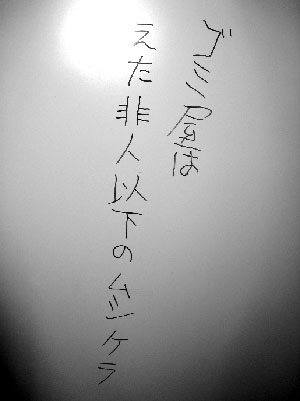 ゴミ屋は
えた非人以下のムシケラ